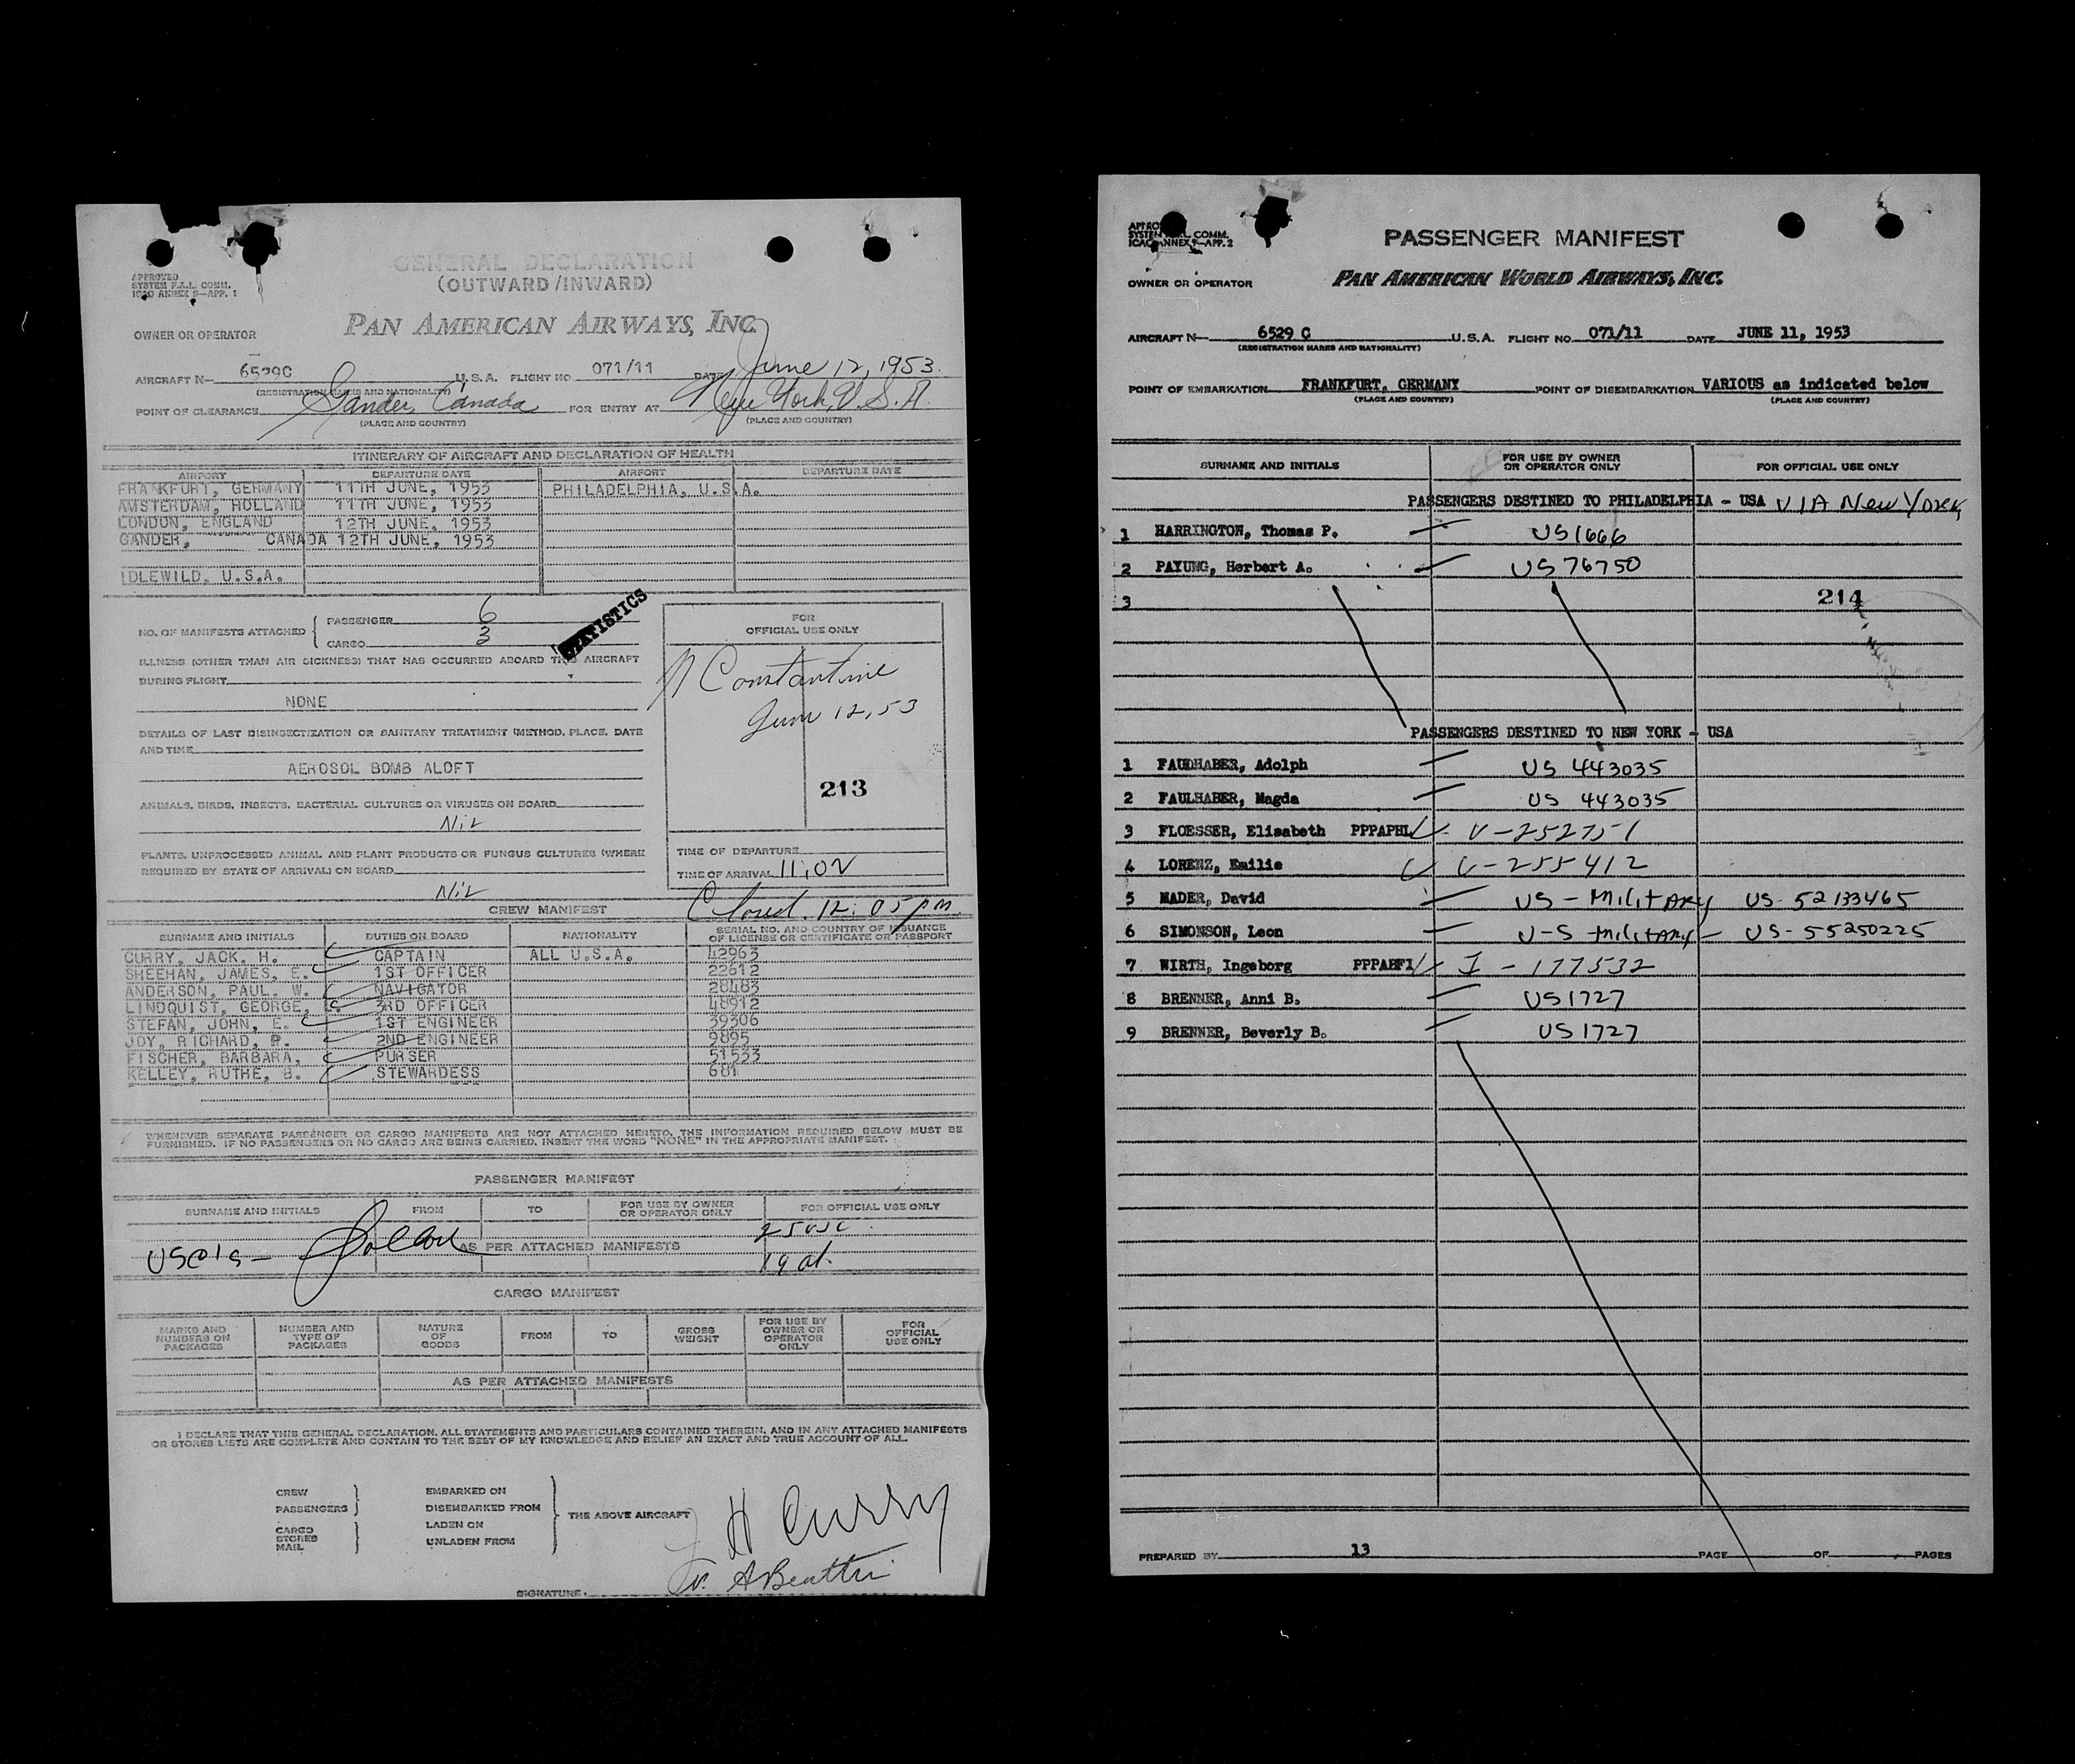 APPROVED
SYSTEM F.A.L. COMM.
ICAO ANNEX 9—APP. 1
GENERAL DECLARATION
(OUTWARD/INWARD)
OWNER OR OPERATOR
PAN AMERICAN AIRWAYS, INC.
AIRCRAFT N— 6529C U.S.A. FLIGHT NO 071/11 DATE June 12, 1953
(REGISTRATION MARKS AND NATIONALITY)
POINT OF CLEARANCE Gander, Canada FOR ENTRY AT New York, U.S.A.
(PLACE AND COUNTRY) (PLACE AND COUNTRY)
ITINERARY OF AIRCRAFT AND DECLARATION OF HEALTH
AIRPORT DEPARTURE DATE AIRPORT DEPARTURE DATE
FRANKFURT, GERMANY 11TH JUNE, 1953 PHILADELPHIA, U.S.A.
AMSTERDAM, HOLLAND 11TH JUNE, 1953
LONDON, ENGLAND 12TH JUNE, 1953
GANDER, CANADA 12TH JUNE, 1953
IDLEWILD, U.S.A.
NO. OF MANIFESTS ATTACHED
PASSENGER 6
CARGO 3
STATISTICS
ILLNESS (OTHER THAN AIR SICKNESS) THAT HAS OCCURRED ABOARD THIS AIRCRAFT
DURING FLIGHT
NONE
DETAILS OF LAST DISINSECTIZATION OR SANITARY TREATMENT (METHOD, PLACE, DATE
AND TIME
AEROSOL BOMB ALOFT
ANIMALS, BIRDS, INSECTS, BACTERIAL CULTURES OR VIRUSES ON BOARD
Nil
PLANTS, UNPROCESSED ANIMAL AND PLANT PRODUCTS OR FUNGUS CULTURES (WHERE
REQUIRED BY STATE OF ARRIVAL) ON BOARD
Nil
FOR
OFFICIAL USE ONLY
Constantine
June 12, 53
213
TIME OF DEPARTURE
TIME OF ARRIVAL 11:02
Closed. 12:05 pm.
CREW MANIFEST
SURNAME AND INITIALS DUTIES ON BOARD NATIONALITY SERIAL NO. AND COUNTRY OF ISSUANCE
OF LICENSE OR CERTIFICATE OR PASSPORT
CURRY, JACK. H. CAPTAIN ALL U.S.A. 42963
SHEEHAN, JAMES, E. 1ST OFFICER 22612
ANDERSON, PAUL. W. NAVIGATOR 28483
LINDQUIST, GEORGE, 3RD OFFICER 48912
STEFAN, JOHN, E. 1ST ENGINEER 39306
JOY, RICHARD, P. 2ND ENGINEER 9895
FISCHER, BARBARA, PURSER 51533
KELLEY, RUTHE, B. STEWARDESS 681
WHENEVER SEPARATE PASSENGER OR CARGO MANIFESTS ARE NOT ATTACHED HERETO, THE INFORMATION REQUIRED BELOW MUST BE
FURNISHED. IF NO PASSENGERS OR NO CARGO ARE BEING CARRIED, INSERT THE WORD "NONE" IN THE APPROPRIATE MANIFEST.
PASSENGER MANIFEST
SURNAME AND INITIALS FROM TO FOR USE BY OWNER
OR OPERATOR ONLY FOR OFFICIAL USE ONLY
25 USC
AS PER ATTACHED MANIFESTS
19 al.
CARGO MANIFEST
MARKS AND
NUMBERS ON
PACKAGES
NUMBER AND
TYPE OF
PACKAGES
NATURE
OF
GOODS
FROM
TO
GROSS
WEIGHT
FOR USE BY
OWNER OR
OPERATOR
ONLY
FOR
OFFICIAL
USE ONLY
AS PER ATTACHED MANIFESTS
I DECLARE THAT THIS GENERAL DECLARATION, ALL STATEMENTS AND PARTICULARS CONTAINED THEREIN, AND IN ANY ATTACHED MANIFESTS
OR STORES LISTS ARE COMPLETE AND CONTAIN TO THE BEST OF MY KNOWLEDGE AND BELIEF AN EXACT AND TRUE ACCOUNT OF ALL.
CREW
PASSENGERS
CARGO
STORES
MAIL
EMBARKED ON
DISEMBARKED FROM
LADEN ON
UNLADEN FROM
THE ABOVE AIRCRAFT
J H Curry
SIGNATURE
SYSTEM F.A.L. COMM.
ICAO ANNEX 9—APP. 2
PASSENGER MANIFEST
OWNER OR OPERATOR
PAN AMERICAN WORLD AIRWAYS, INC.
AIRCRAFT N— 6529 C U.S.A. FLIGHT NO 071/11 DATE JUNE 11, 1953
(REGISTRATION MARKS AND NATIONALITY)
POINT OF EMBARKATION FRANKFURT, GERMANY POINT OF DISEMBARKATION VARIOUS as indicated below
(PLACE AND COUNTRY) (PLACE AND COUNTRY)
SURNAME AND INITIALS FOR USE BY OWNER
OR OPERATOR ONLY FOR OFFICIAL USE ONLY
PASSENGERS DESTINED TO PHILADELPHIA - USA VIA New York
1 HARRINGTON, Thomas P. US1666
2 PAYUNG, Herbert A. US 76750
3
214
PASSENGERS DESTINED TO NEW YORK - USA
1 FAUDHABER, Adolph US 443035
2 FAULHABER, Magda US 443035
3 FLOESSER, Elisabeth PPPAPHL V-252751
4 LORENZ, Emilie V-255412
5 MADER, David US - Military US-52133465
6 SIMONSON, Leon U-S - Military - US-55250225
7 WIRTH, Ingeborg PPPABF1 I - 177532
8 BRENNER, Anni B. US1727
9 BRENNER, Beverly B. US1727
PREPARED BY 13 PAGE OF PAGES